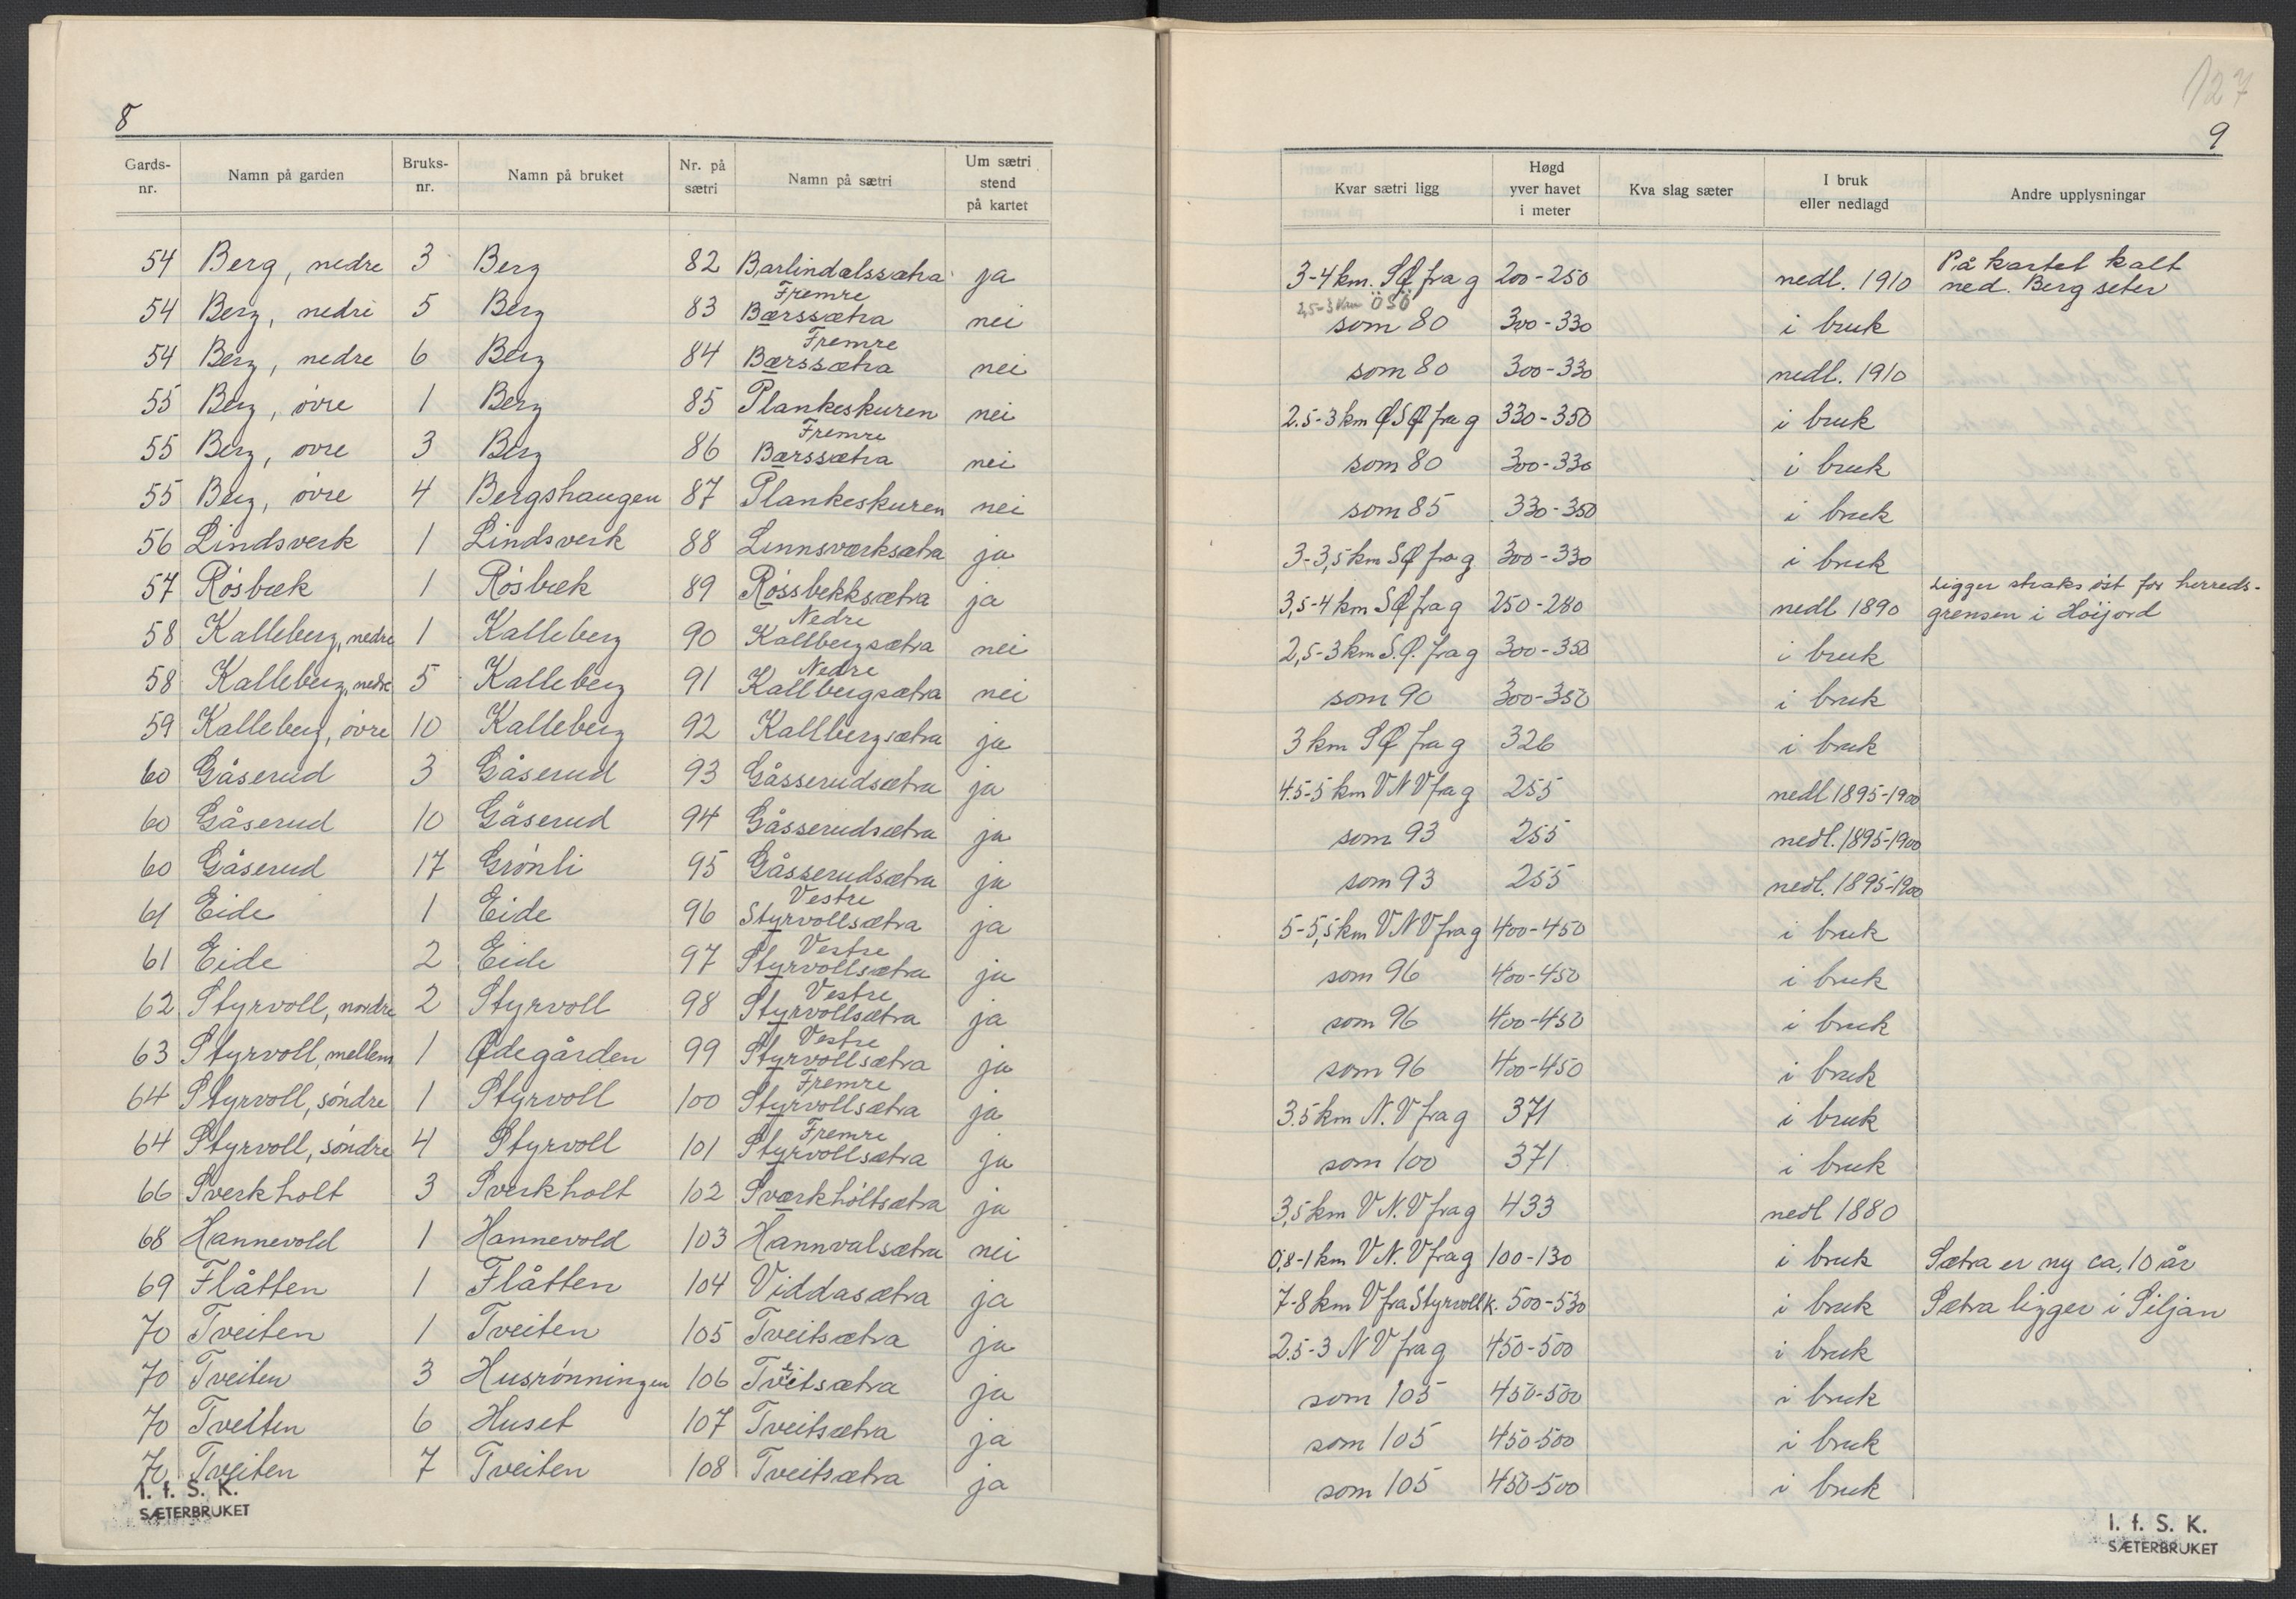 8
Gards-nr. Namn på garden Bruks-nr. Namn på bruket Nr. på sætri Namn på sætri Um sætri stend på kartet
54 Berg, nedre 3 Berg 82 Barlindalssætra ja
54 Berg, nedre 5 Berg 83 Fremre Bærssætra nei
54 Berg, nedre 6 Berg 84 Fremre Bærssætra nei
55 Berg, øvre 1 Berg 85 Plankeskuren nei
55 Berg, øvre 3 Berg 86 Fremre Bærssætra nei
55 Berg, øvre 4 Bergshaugen 87 Plankeskuren nei
56 Lindsverk 1 Lindsverk 88 Linnsværksætra ja
57 Røsbæk 1 Røsbæk 89 Røssbekksætra ja
58 Kalleberg, nedre 1 Kalleberg 90 Nedre Kallbergsætra nei
58 Kalleberg, nedre 5 Kalleberg 91 Nedre Kallbergsætra nei
59 Kalleberg, øvre 10 Kalleberg 92 Kallbergsætra ja
60 Gåserud 3 Gåserud 93 Gåsserudsætra ja
60 Gåserud 10 Gåserud 94 Gåsserudsætra ja
60 Gåserud 17 Grønli 95 Gåsserudsætra ja
61 Eide 1 Eide 96 Vestre Styrvollsætra ja
61 Eide 2 Eide 97 Vestre Styrvollsætra ja
62 Styrvoll, nordre 2 Styrvoll 98 Vestre Styrvollsætra ja
63 Styrvoll, mellem 1 Ødegården 99 Vestre Styrvollsætra ja
64 Styrvoll, søndre 1 Styrvoll 100 Fremre Styrvollsætra ja
64 Styrvoll, søndre 4 Styrvoll 101 Fremre Styrvollsætra ja
66 Sverkholt 3 Sverkholt 102 Sværkhøltsætra ja
68 Hannevold 1 Hannevold 103 Hannvalsætra nei
69 Flåtten 1 Flåtten 104 Viddasætra ja
70 Tveiten 1 Tveiten 105 Tveitsætra ja
70 Tveiten 3 Husrønningen 106 Tveitsætra ja
70 Tveiten 6 Huset 107 Tveitsætra ja
70 Tveiten 7 Tveiten 108 Tveitsætra ja
I. f. S. K.
SÆTERBRUKET
127
9
Kvar sætri ligg Høgd yver havet i meter Kva slag sæter I bruk eller nedlagd Andre upplysningar
3-4 km. SØ fra g 200-250 nedl. 1910 På kartet kalt ned. Berg seter
2,5-3 km ÖSÖ
som 80 300-330 i bruk
som 80 300-330 nedl. 1910
2.5-3 km ØSØ fra g 330-350 i bruk
som 80 300-330 i bruk
som 85 330-350 i bruk
3-3,5 km SØ fra g 300-330 i bruk
3,5-4 km SØ fra g 250-280 nedl 1890 Ligger straks øst for herreds-grensen i Høijord
2,5-3 km S.Ø. fra g 300-350 i bruk
som 90 300-350 i bruk
3 km SØ fra g 326 i bruk
4.5-5 km VNV fra g 255 nedl 1895-1900
som 93 255 nedl. 1895-1900
som 93 255 nedl. 1895-1900
5-5,5 km VNV fra g 400-450 i bruk
som 96 400-450 i bruk
som 96 400-450 i bruk
som 96 400-450 i bruk
3.5 km N.V fra g 371 i bruk
som 100 371 i bruk
3,5 km VN.V fra g 433 nedl 1880
0,8-1 km VN.V fra g 100-130 i bruk Sætra er ny ca. 10 år
7-8 km V fra Styrvoll k. 500-530 i bruk Sætra ligger i Siljan
2.5-3 NV fra g 450-500 i bruk
som 105 450-500 i bruk
som 105 450-500 i bruk
som 105 450-500 i bruk
I. f. S. K.
SÆTERBRUKET